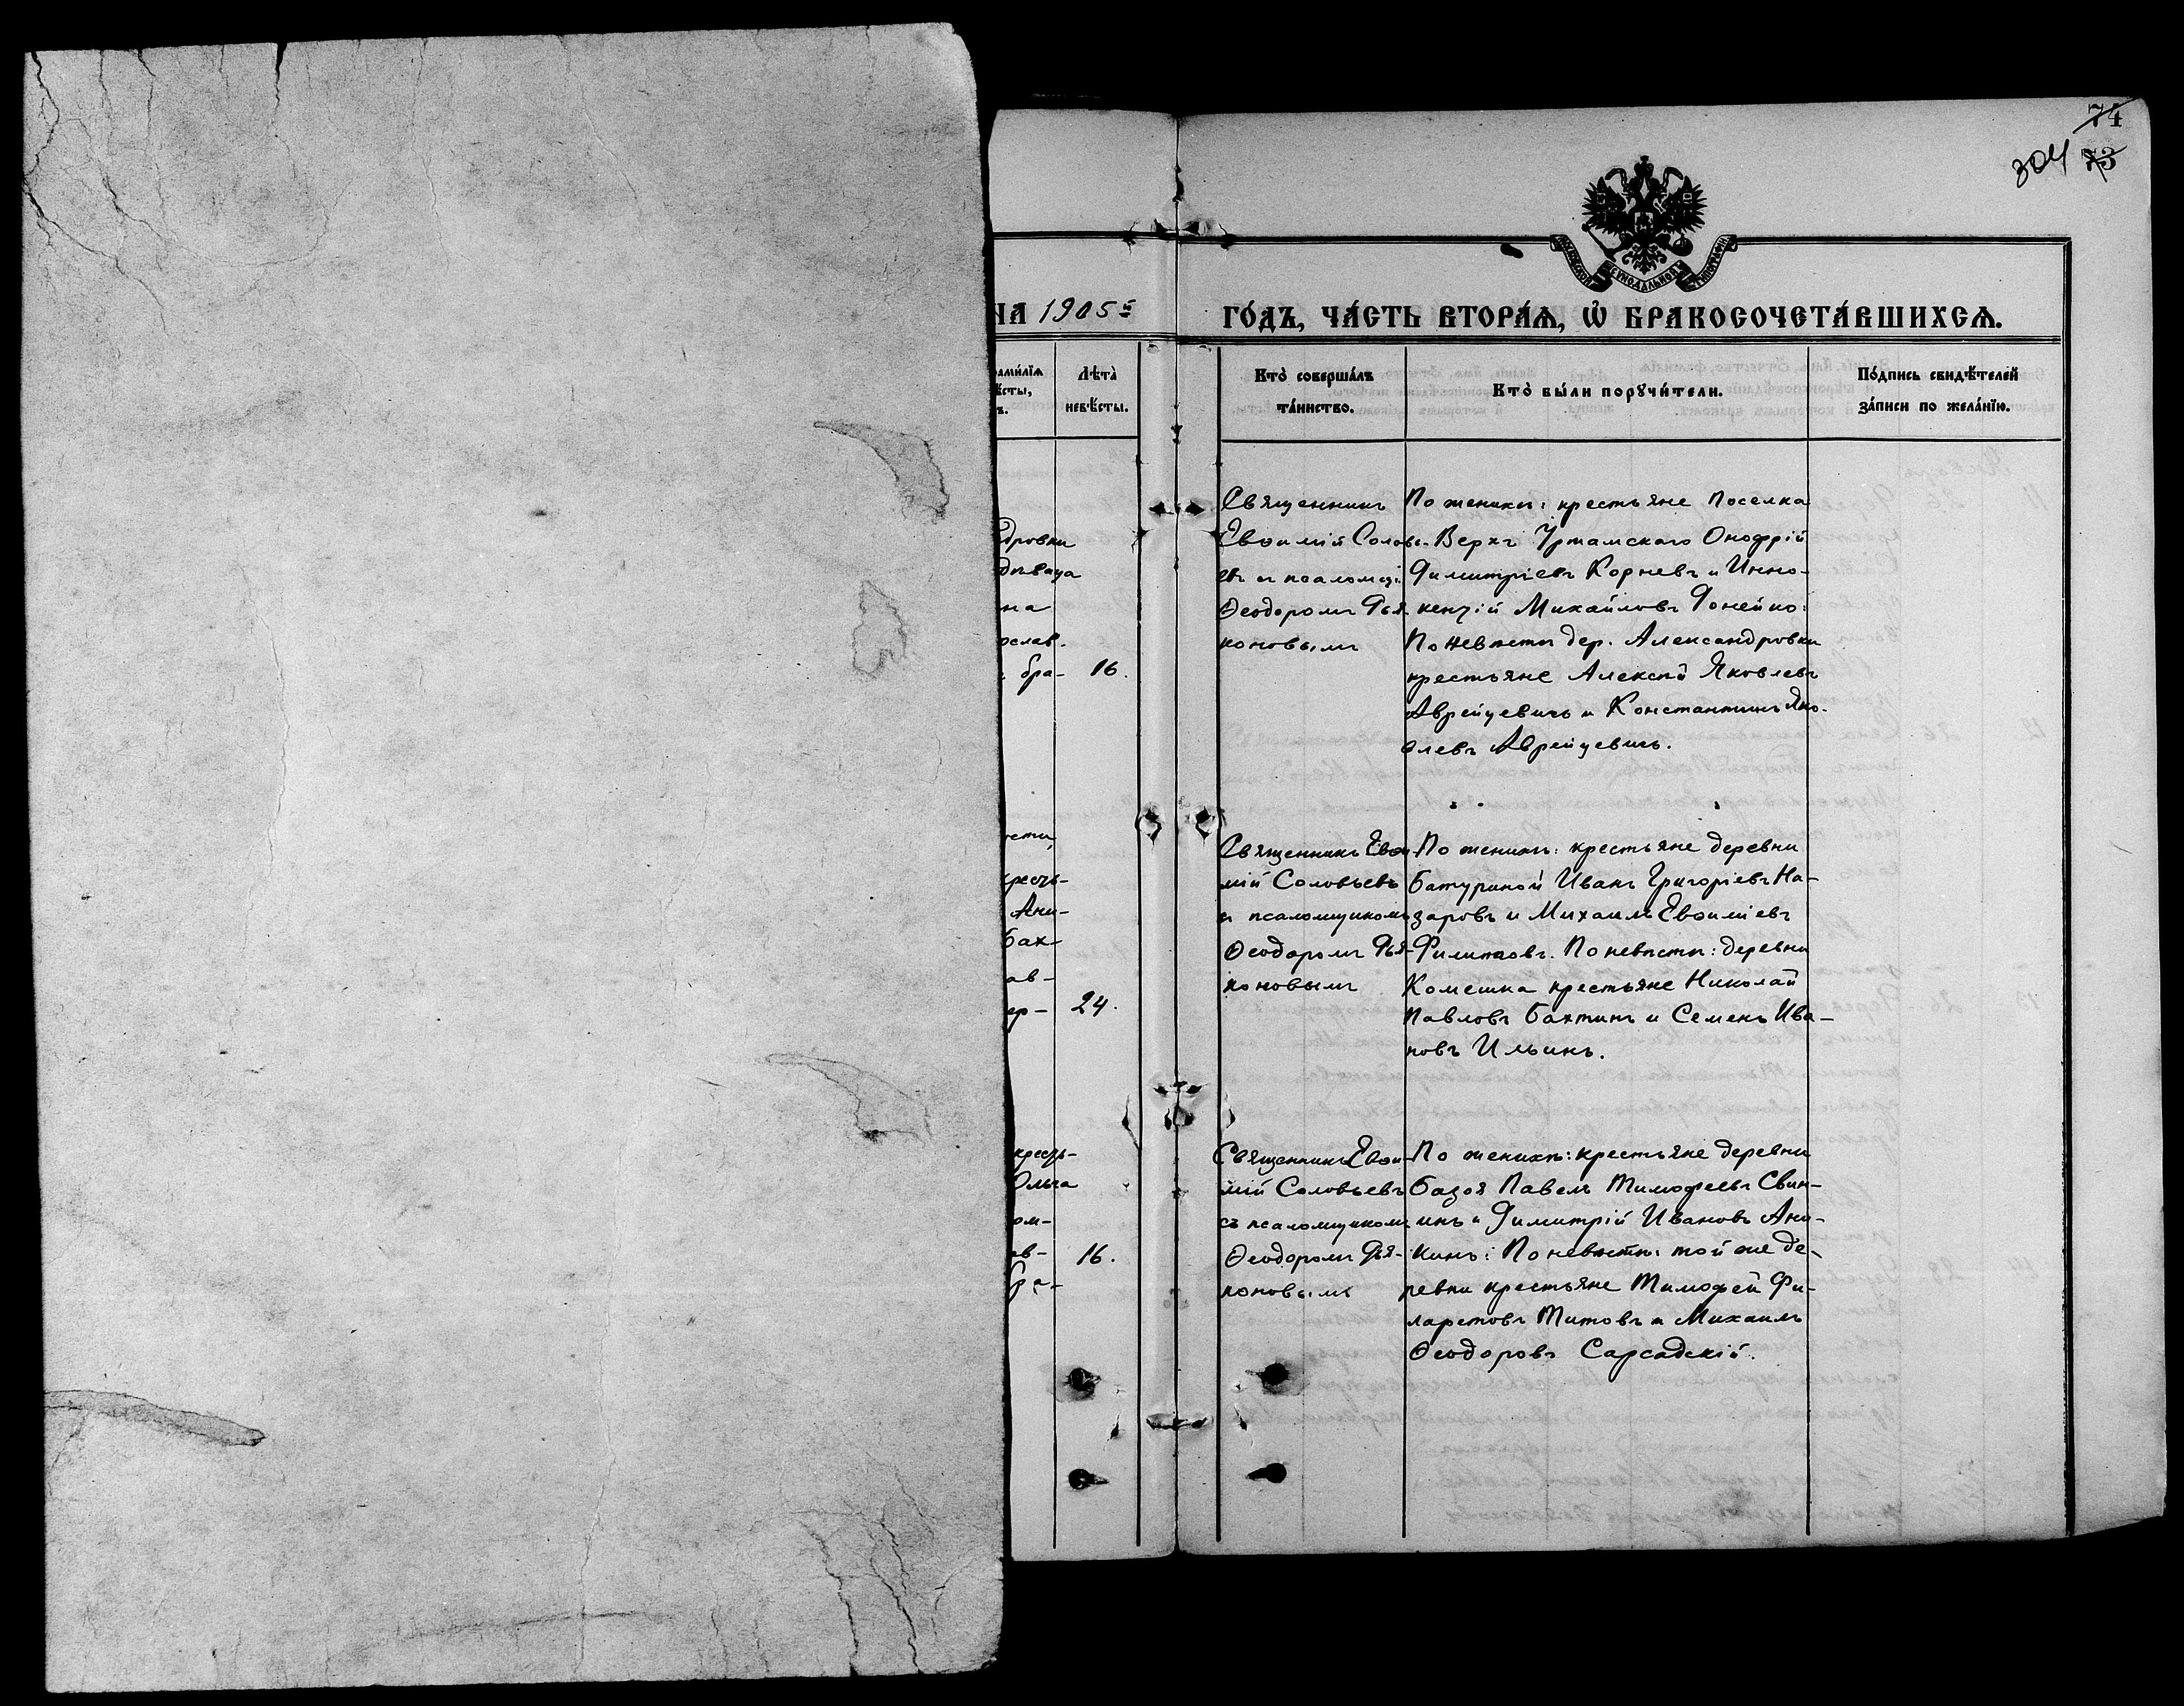 74
304 73
МОСКОВСКОЙ СѴНОДАЛЬНОЙ ТИПОГРАФІИ
НА 1905й ГО́ДЪ, ЧА́СТЬ ВТОРА́Ѧ, Ѡ҆ БРАКОСОЧЕТА́ВШИХСѦ.
Лѣта̀
невѣ́сты.
Кто̀ соверша́лъ
та́инство.
Кто̀ бы́ли порꙋчи́тели.
По́дпись свидѣ́телей
за́писи по жела́нїю.
дровки
на
ослав.
бра- 16.
Священникъ
Евѳимій Соловь-
евъ съ псаломщ.
Ѳеодоромъ Дья-
коновымъ
По женихѣ: крестьяне поселка
Верхъ Уртамскаго Онофрій
Димитріевъ Корневъ и Инно-
кентій Михайловъ Донейко:
По невѣстѣ дер. Александровки
крестьяне Алексѣй Яковлевъ
Аврейцевичъ и Константинъ Яко-
влевъ Аврейцевичъ.
кресть-
Ани-
Бах-
ав-
ер- 24.
Священникъ Евѳи-
мій Соловьевъ
съ псаломщикомъ
Ѳеодоромъ Дья-
коновымъ
По женихѣ: крестьяне деревни
Батуриной Иванъ Григорьевъ На-
заровъ и Михаилъ Евѳиміевъ
Филиповъ. По невѣстѣ: деревни
Комешка крестьяне Николай
Павловъ Бахтинъ и Семенъ Ива-
новъ Ильинъ.
кресть-
Ольга
ом-
ав- 16.
бра-
Священникъ Евѳи-
мій Соловьевъ
съ псаломщикомъ
Ѳеодоромъ Дья-
коновымъ
По женихѣ: крестьяне деревни
Базоя Павелъ Тимофеевъ Свин-
инъ и Димитрій Ивановъ Ани-
кинъ: По невѣстѣ: той же де-
ревни крестьяне Тимофей Фи-
ларетовъ Титовъ и Михаилъ
Ѳеодоровъ Сарсадскій.